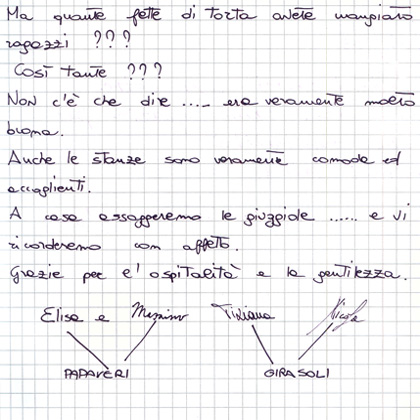 Ma quante fette di torta avete mangiato
ragazzi ???
Così tante ???
Non c'è che dire ..... era veramente molto
buona.
Anche le stanze sono veramente comode ed
accoglienti.
A casa assaggeremo le giuggiole ...... e vi
ricorderemo con affetto.
Grazie per l'ospitalità e la gentilezza.
Elisa e Massimo Tiziana Nicola
PAPAVERI GIRASOLI